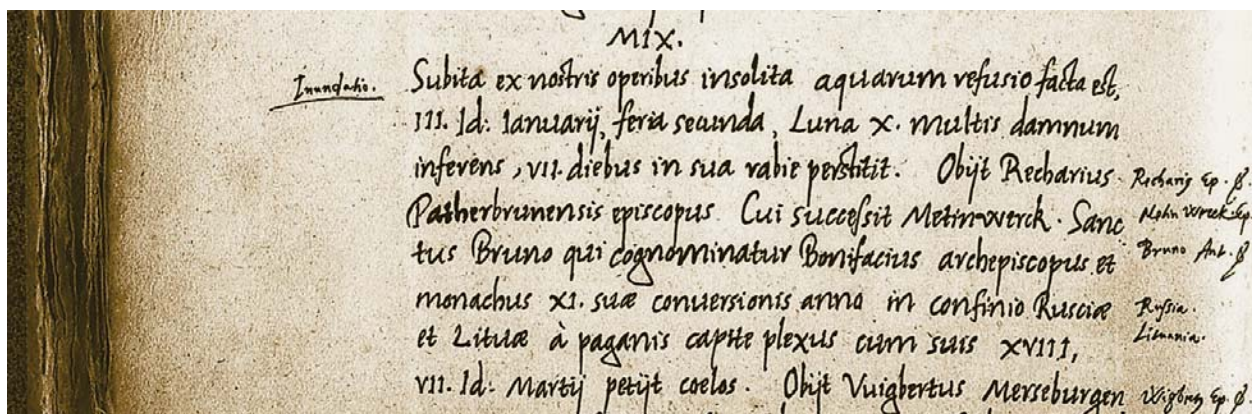 MIX.
Inundatio.
Subita ex nostris operibus insolita aquarum refusio facta est,
III. Id: Ianuarij, feria secunda, Luna X. multis damnum
inferens, VII. diebus in sua rabie perstitit. Obijt Recharius
Richarij Ep.
Patherbrunensis episcopus. Cui successit Metinwerck. Sanc
Ep.
tus Bruno qui cognominatur Bonifacius archepiscopus et
Bruno
monachus XI. suæ conversionis anno in confinio Rusciæ
Russia.
et Lituæ à paganis capite plexus cum suis XVIII,
Lituania.
VII. Id: Martij petijt coelos. Obijt Vuigbertus Merseburgen
Ep.